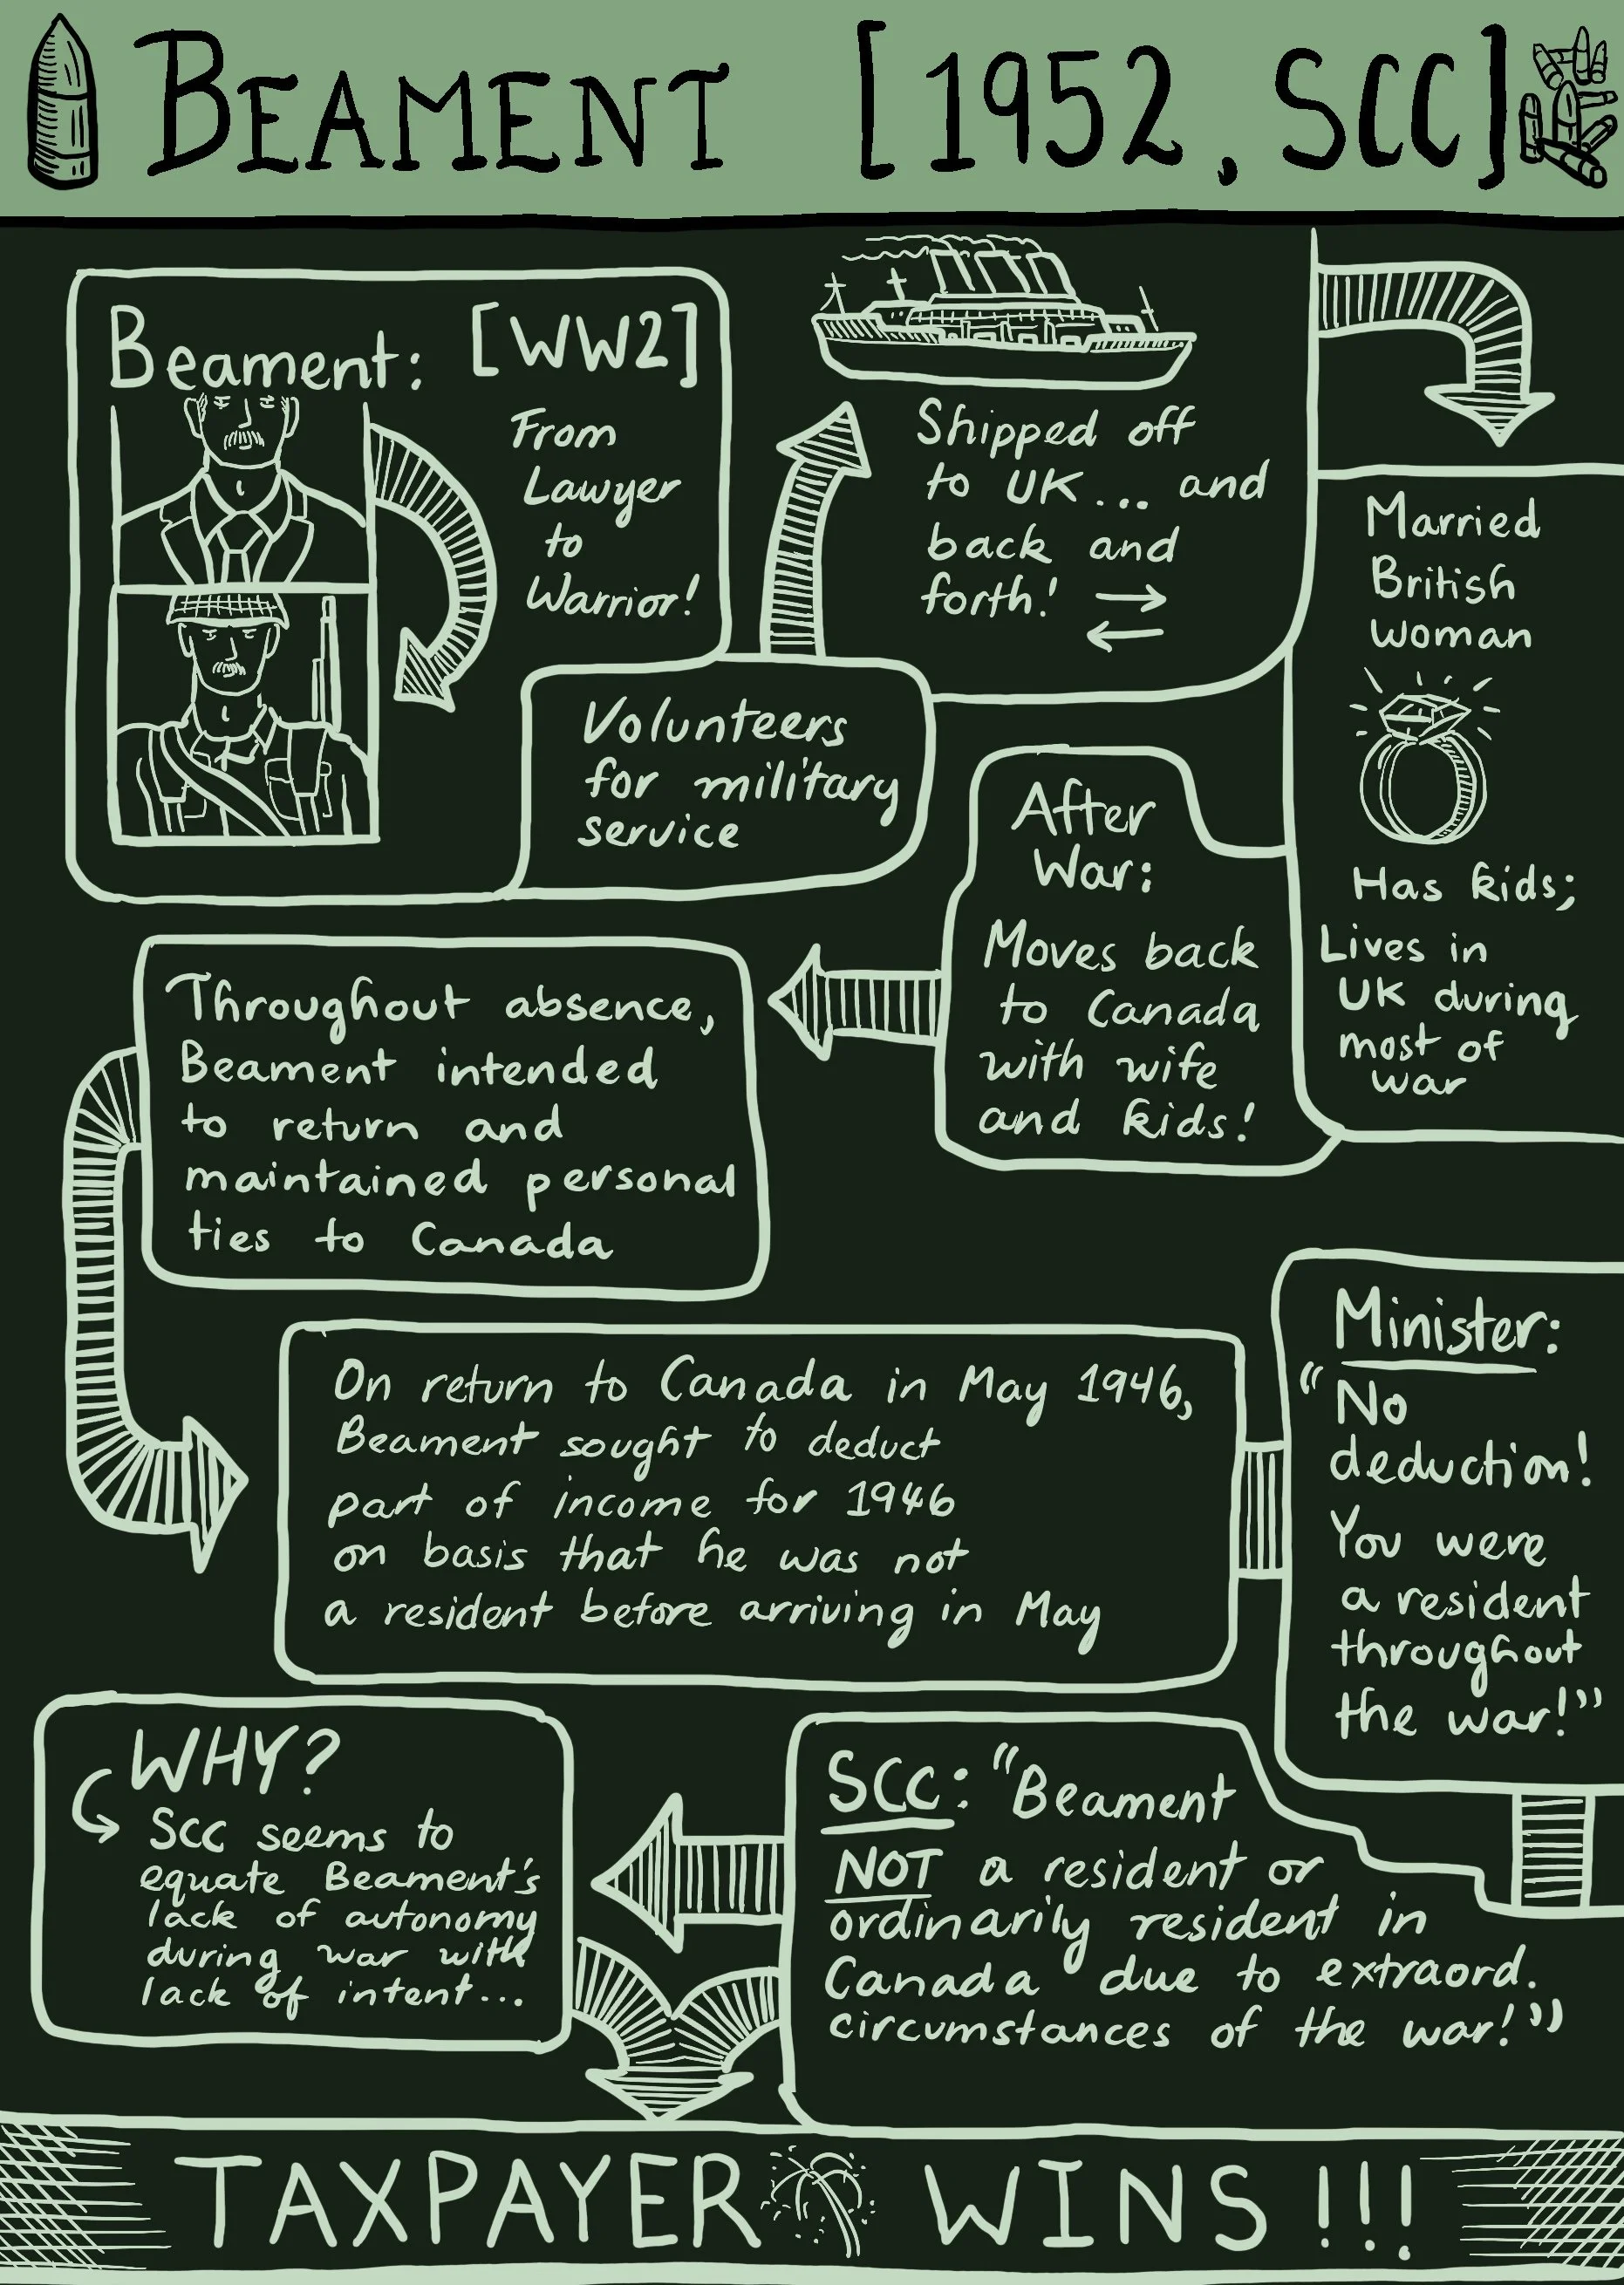 BEAMENT [1952, SCC]
Beament: [WW2]
From
Lawyer
to
Warrior!
Volunteers
for military
service
Shipped off
to UK... and
back and
forth!
Married
British
woman
Has kids;
Lives in
UK during
most of
war
After
War:
Moves back
to Canada
with wife
and kids!
Throughout absence,
Beament intended
to return and
maintained personal
ties to Canada
On return to Canada in May 1946,
Beament sought to deduct
part of income for 1946
on basis that he was not
a resident before arriving in May
Minister:
"No
deduction!
You were
a resident
throughout
the war!"
SCC: "Beament
NOT a resident or
ordinarily resident in
Canada due to extraord.
circumstances of the war!"
WHY?
SCC seems to
equate Beament's
lack of autonomy
during war with
lack of intent...
TAXPAYER WINS!!!